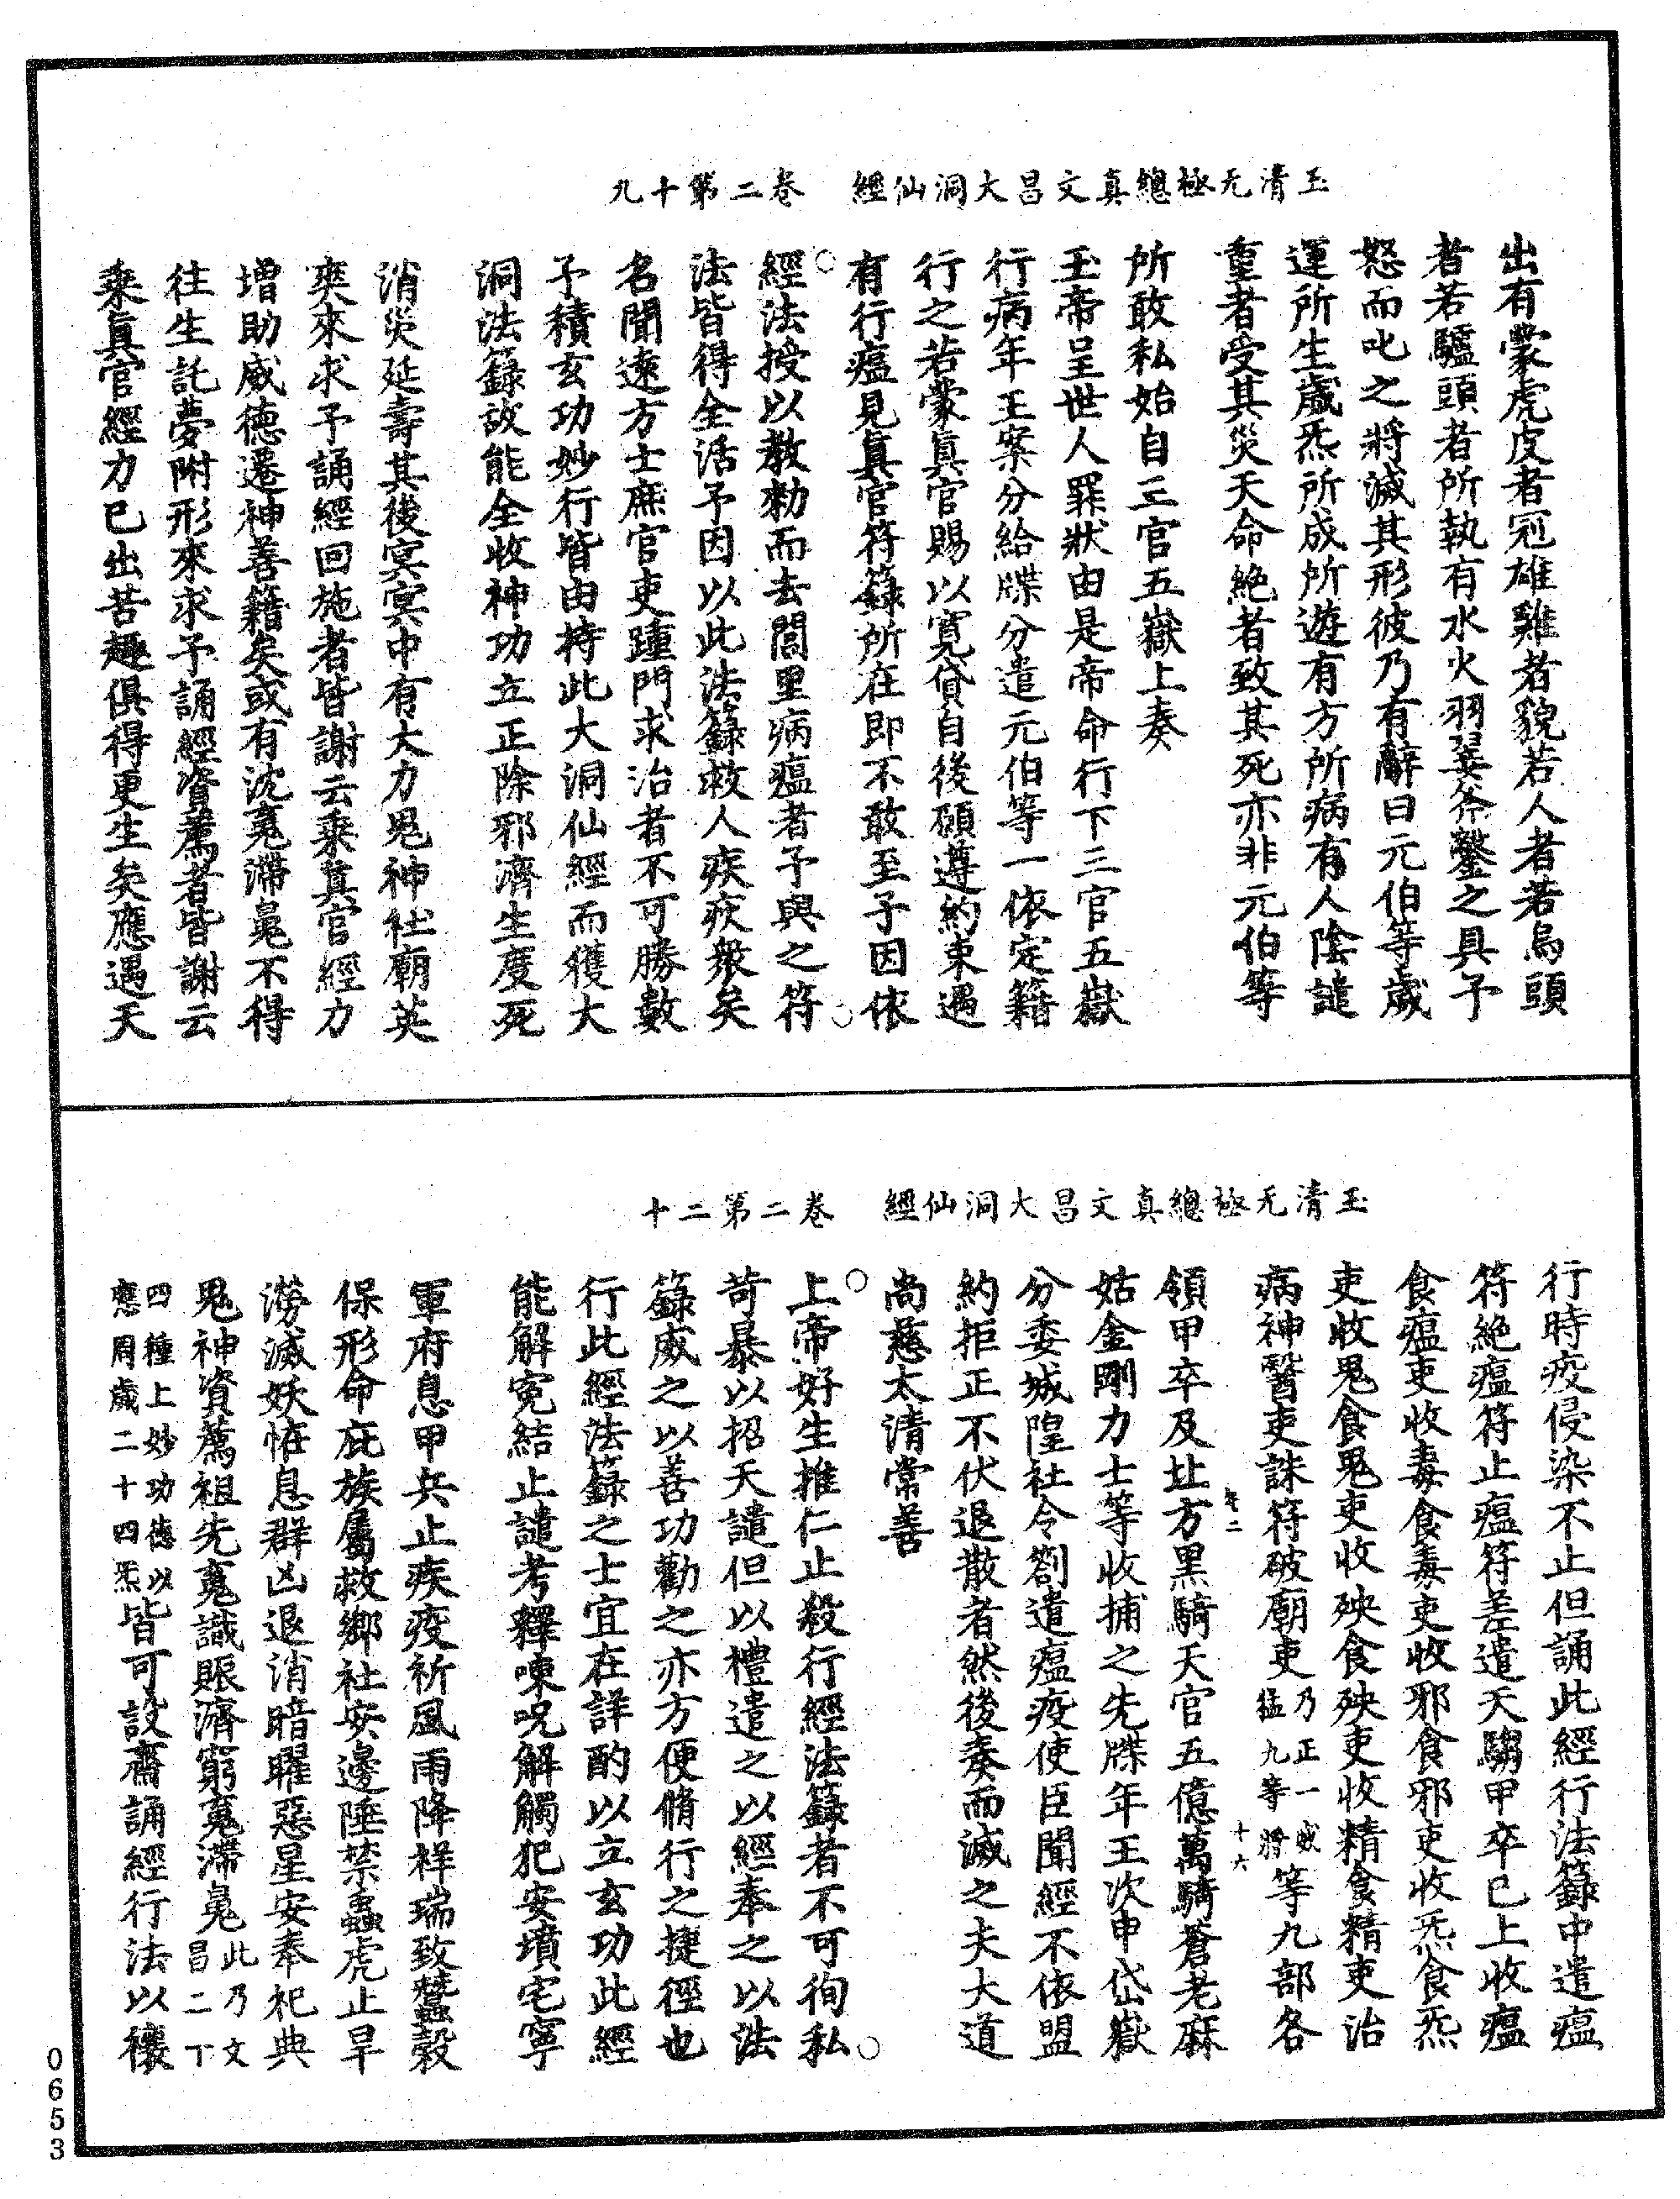 玉清无極總真文昌大洞仙經　卷二第十九
出有蒙虎皮者冠雄雞者貌若人者若烏頭
者若驢頭者所執有水火羽翣斧鑿之具予
怒而叱之將滅其形彼乃有辭曰元伯等歲
運所生歲炁所成所遊有方所病有人陰譴
重者受其災天命絶者致其死亦非元伯等
所敢私始自三官五嶽上奏
玉帝呈世人罪狀由是帝命行下三官五嶽
行病年王案分給牒分遣元伯等一依定籍
行之若蒙真官賜以寛貸自後願遵約束遇
有行瘟見真官符籙所在即不敢至予因依
經法授以教勑而去閭里病瘟者予與之符
法皆得全活予因以此法籙救人疾疢衆矣
名聞遠方士庶官吏踵門求治者不可勝數
予積玄功妙行皆由持此大洞仙經而獲大
洞法籙故能全收神功立正除邪濟生度死
消災延壽其後冥冥中有大力鬼神社廟英
爽來求予誦經回施者皆謝云乘真官經力
增助威德遷神善籍矣或有沈寃滯鬼不得
往生託夢附形來求予誦經資薦者皆謝云
乘真官經力已出苦趣俱得更生矣應遇天
玉清无極總真文昌大洞仙經　卷二第二十
行時疫侵染不止但誦此經行法籙中遣瘟
符絶瘟符止瘟符差遣天騶甲卒已上收瘟
食瘟吏收毒食毒吏收邪食邪吏收炁食炁
吏收鬼食鬼吏收殃食殃吏收精食精吏治
病神醫吏誅符破廟吏乃正一威猛九等將等九部各
領甲卒及北方黑騎天官五億萬騎蒼老麻
姑金剛力士等收捕之先牒年王次申岱嶽
分委城隍社令劄遣瘟疫使臣聞經不依盟
約拒正不伏退散者然後奏而滅之夫大道
尚慈太清常善
上帝好生推仁止殺行經法籙者不可徇私
苛暴以招天譴但以禮遣之以經奉之以法
籙威之以善功勸之亦方便脩行之捷徑也
行此經法籙之士宜在詳酌以立玄功此經
能解寃結止譴考釋㖫呪解觸犯安墳宅寧
軍府息甲兵止疾疫祈風雨降祥瑞致蠶穀
保形命庇族屬救鄉社安邊陲禁蟲虎止旱
澇滅妖恠息群凶退消暗曜惡星安奉祀典
鬼神資薦祖先寃識賑濟窮寃滯鬼此乃文昌二丁
四種上妙功德以應周歲二十四炁皆可設齋誦經行法以禳
0653